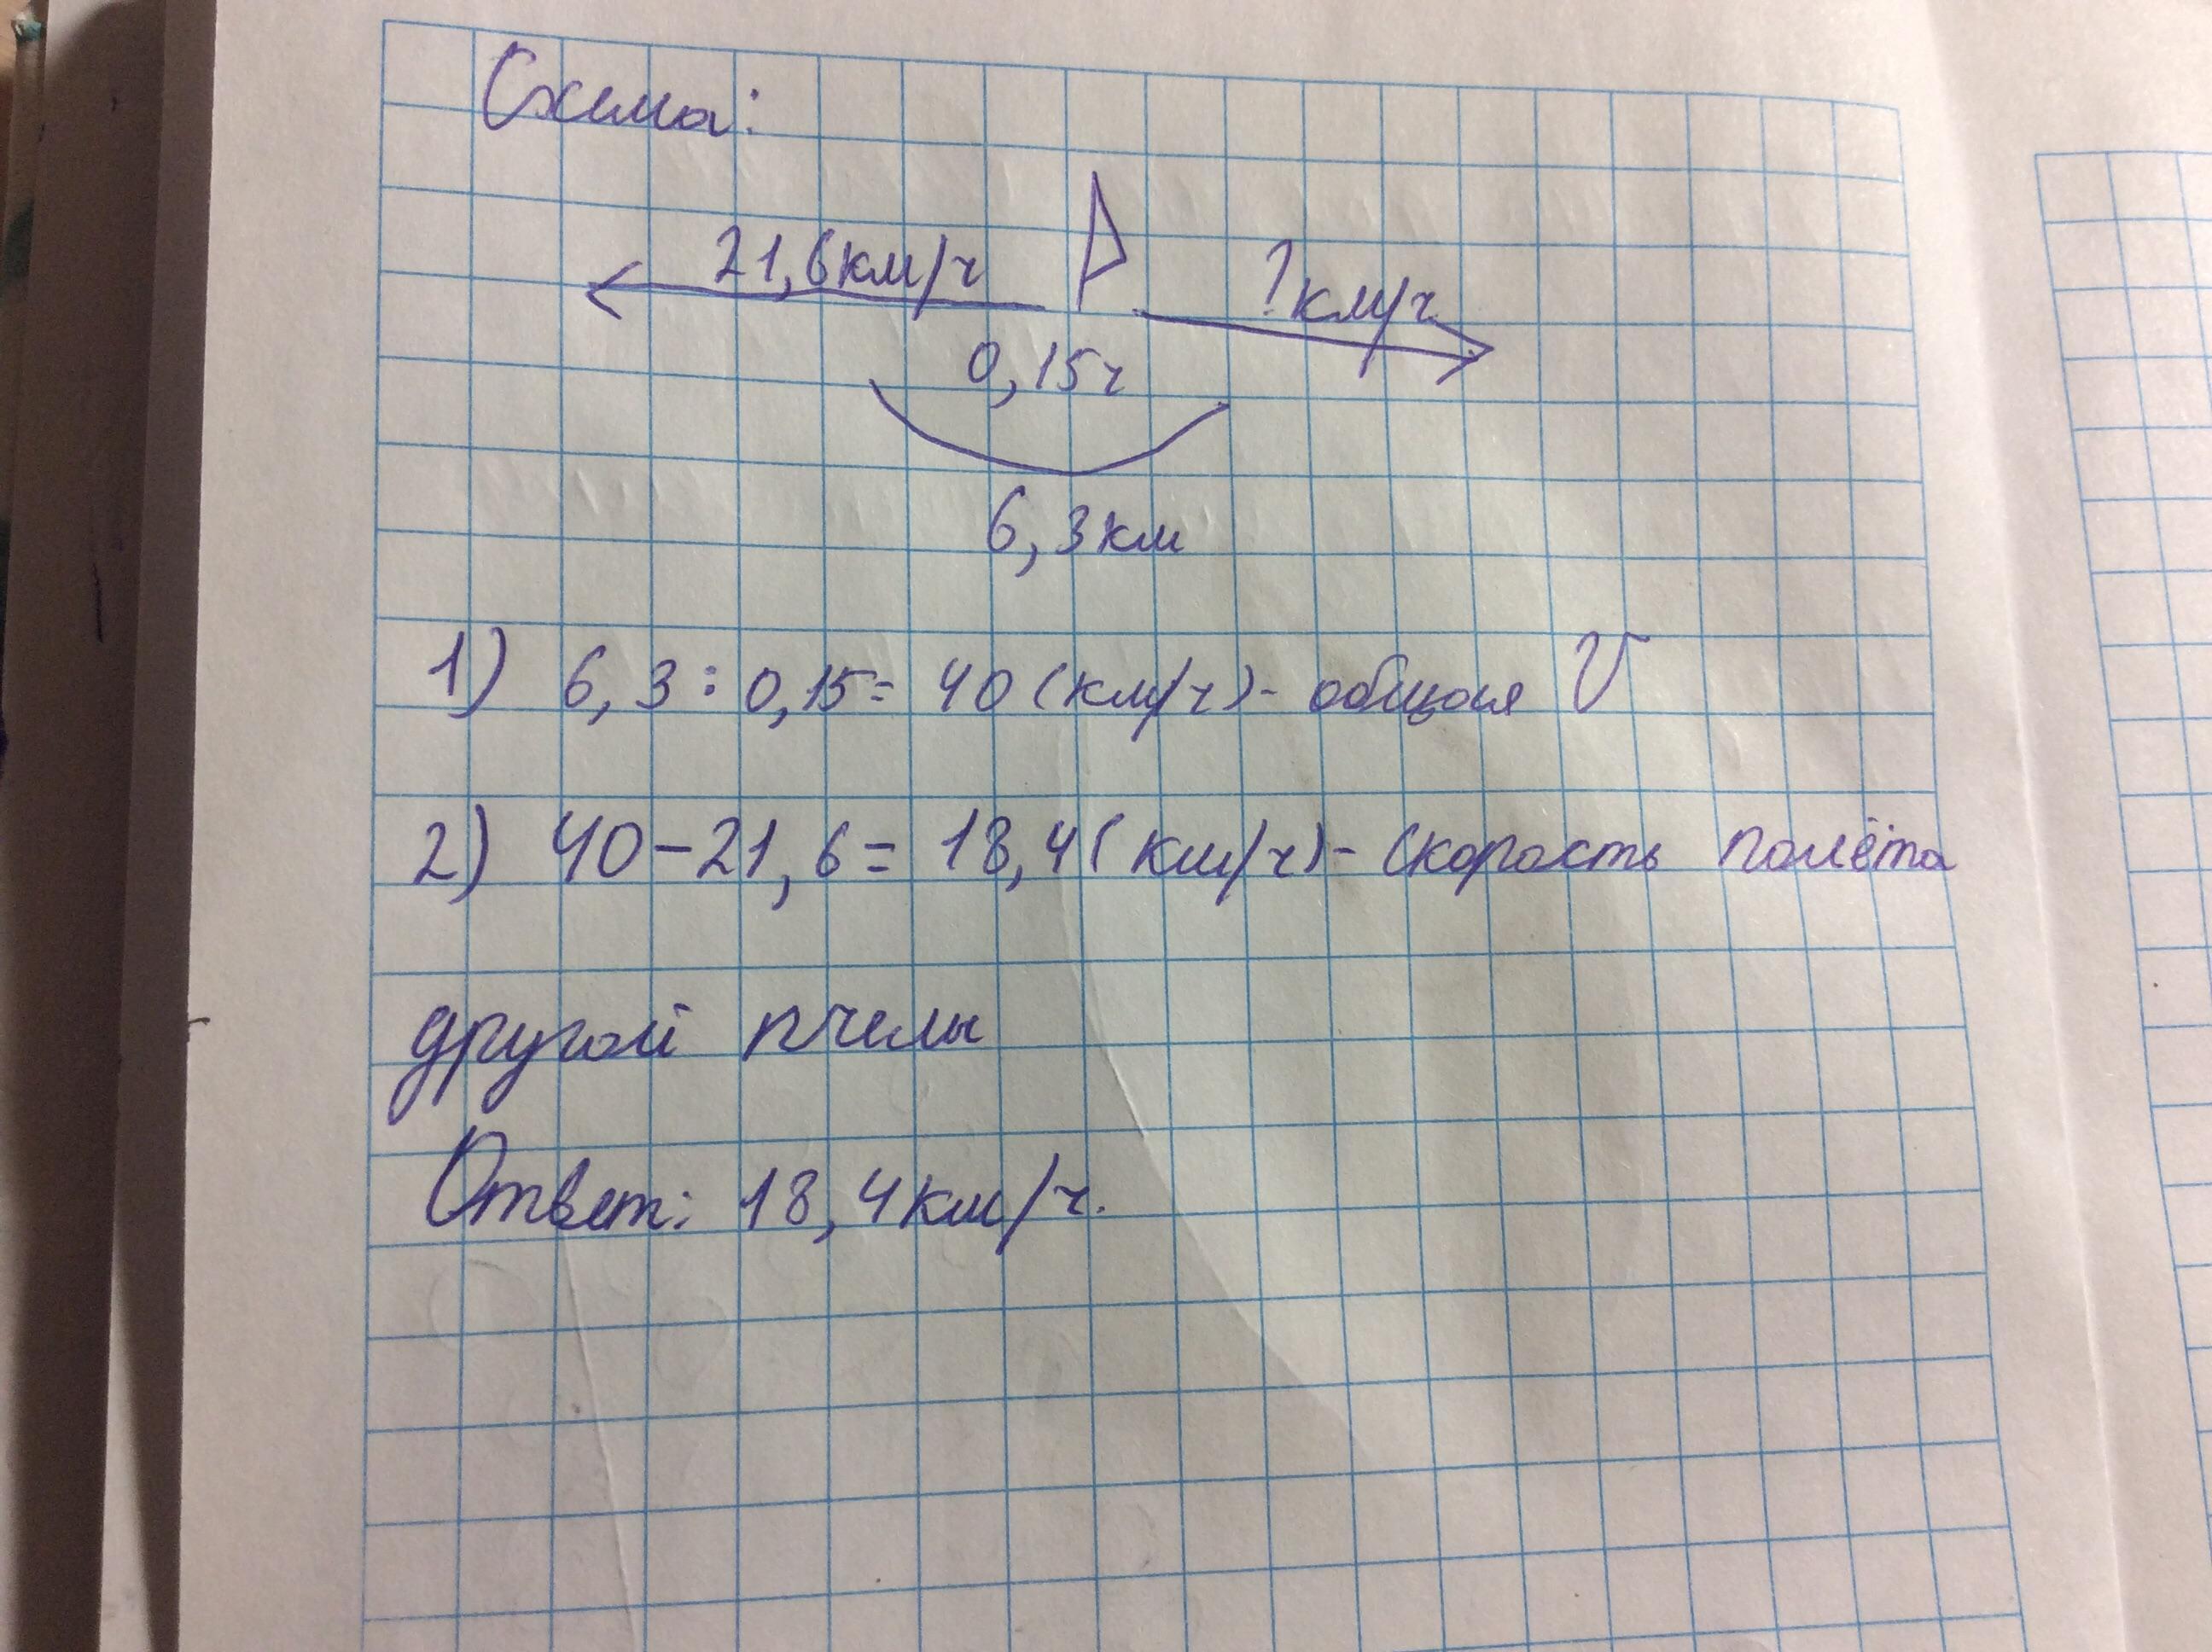 Схема:
21,6км/ч ?км/ч
0,15ч
6,3км
1) 6,3:0,15= 40(км/ч)- общая V
2) 40-21,6= 18,4(км/ч)- скорость полёта
другой пчелы
Ответ: 18,4км/ч.